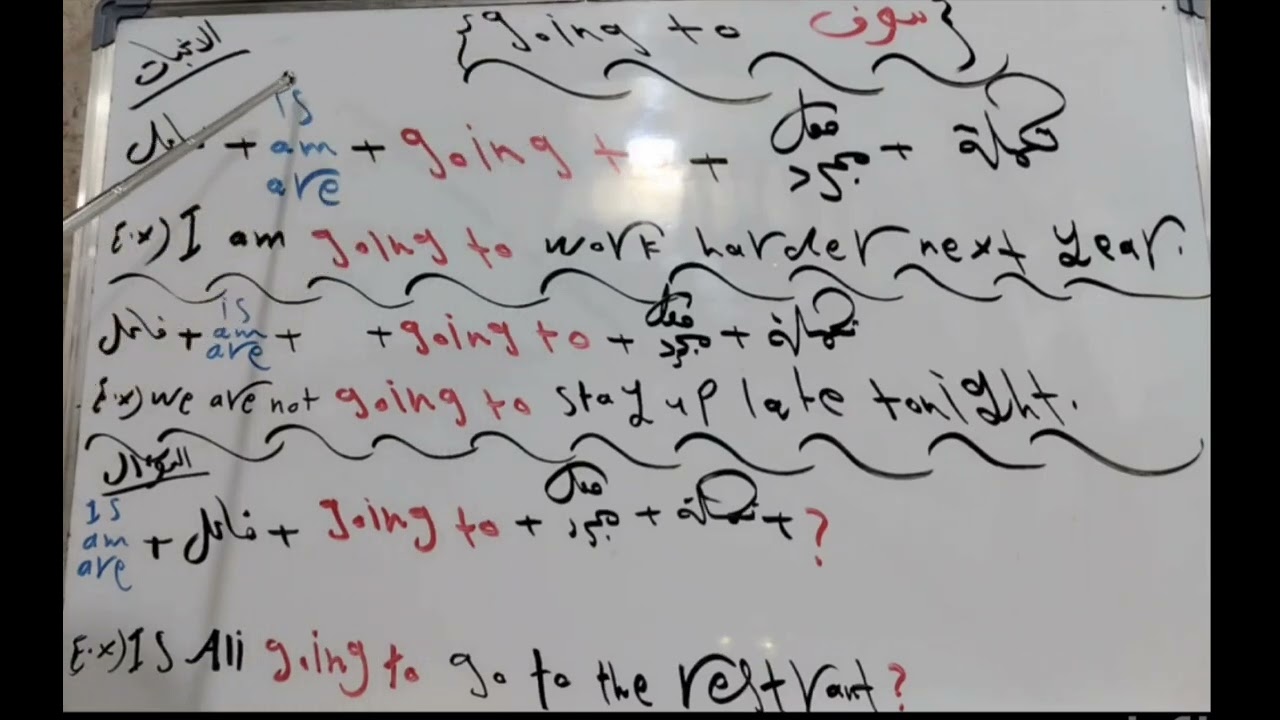 {going to سوف}
الاثبات
فاعل + is am are + going t + فعل مجرد + تكملة
Ex) I am going to work harder next year.
فاعل + is am are + + going to + فعل مجرد + تكملة
Ex) we are not going to stay up late tonight.
السؤال
Is am are + فاعل + going to + فعل مجرد + تكملة + ?
Ex) Is Ali going to go to the restrant?